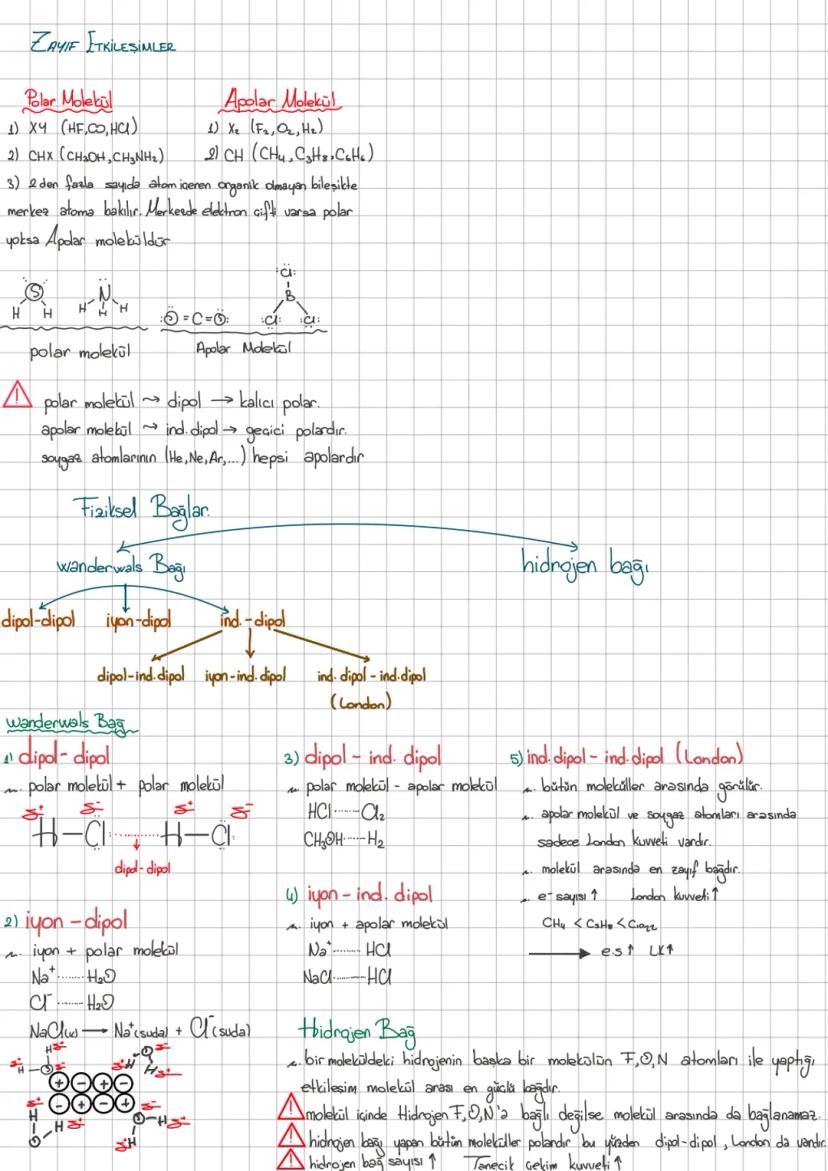 ZAYIF ETKİLEŞİMLER
Polar Molekül
1) XY (HF,CO,HCl)
2) CHX (CH₃OH,CH₃NH₂)
Apolar Molekül
1) X₂ (F₂,O₂,H₂)
2) CH (CH₄,C₃H₈,C₆H₆)
3) 2den fazla sayıda atom içeren organik olmayan bileşikte
merkez atoma bakılır. Merkezde elektron çifti varsa polar
yoksa Apolar moleküldür
S
H H
N
H H H
O=C=O
Cl
B
Cl Cl
polar molekül
Apolar Molekül
polar molekül ⤳ dipol → kalıcı polar.
apolar molekül ⤳ ind.dipol → geçici polardır.
soygaz atomlarının (He,Ne,Ar,...) hepsi apolardır
Fiziksel Bağlar
wanderwals Bağı
hidrojen bağı
dipol-dipol iyon-dipol ind.-dipol
dipol-ind.dipol iyon-ind.dipol ind. dipol - ind.dipol
(London)
wanderwals Bağ
1) dipol-dipol
polar molekül + polar molekül
δ+ δ- δ+ δ-
H-Cl ........ H-Cl
dipol-dipol
2) iyon-dipol
iyon + polar molekül
Na⁺ ........ H₂O
Cl⁻ ........ H₂O
NaCl(k) → Na⁺(suda) + Cl⁻(suda)
3) dipol - ind. dipol
polar molekül - apolar molekül
HCl ........ Cl₂
CH₃OH ........ H₂
4) iyon-ind. dipol
iyon + apolar molekül
Na⁺ ........ HCl
NaCl ........ HCl
5) ind.dipol - ind.dipol (London)
bütün moleküller arasında görülür.
apolar molekül ve soygaz atomları arasında
sadece London kuvveti vardır.
molekül arasında en zayıf bağdır.
e- sayısı ↑ London kuvveti ↑
CH₄ < C₃H₈ <
→ e.s ↑ LK ↑
Hidrojen Bağ
bir moleküldeki hidrojenin başka bir molekülün F,O,N atomları ile yaptığı
etkileşim molekül arası en güçlü bağdır.
molekül içinde Hidrojen F,O,N'a bağlı değilse molekül arasında da bağlanamaz.
hidrojen bağı yapan bütün moleküller polardır bu yüzden dipol-dipol, London da vardır.
hidrojen bağ sayısı ↑ Tanecik çekim kuvveti ↑